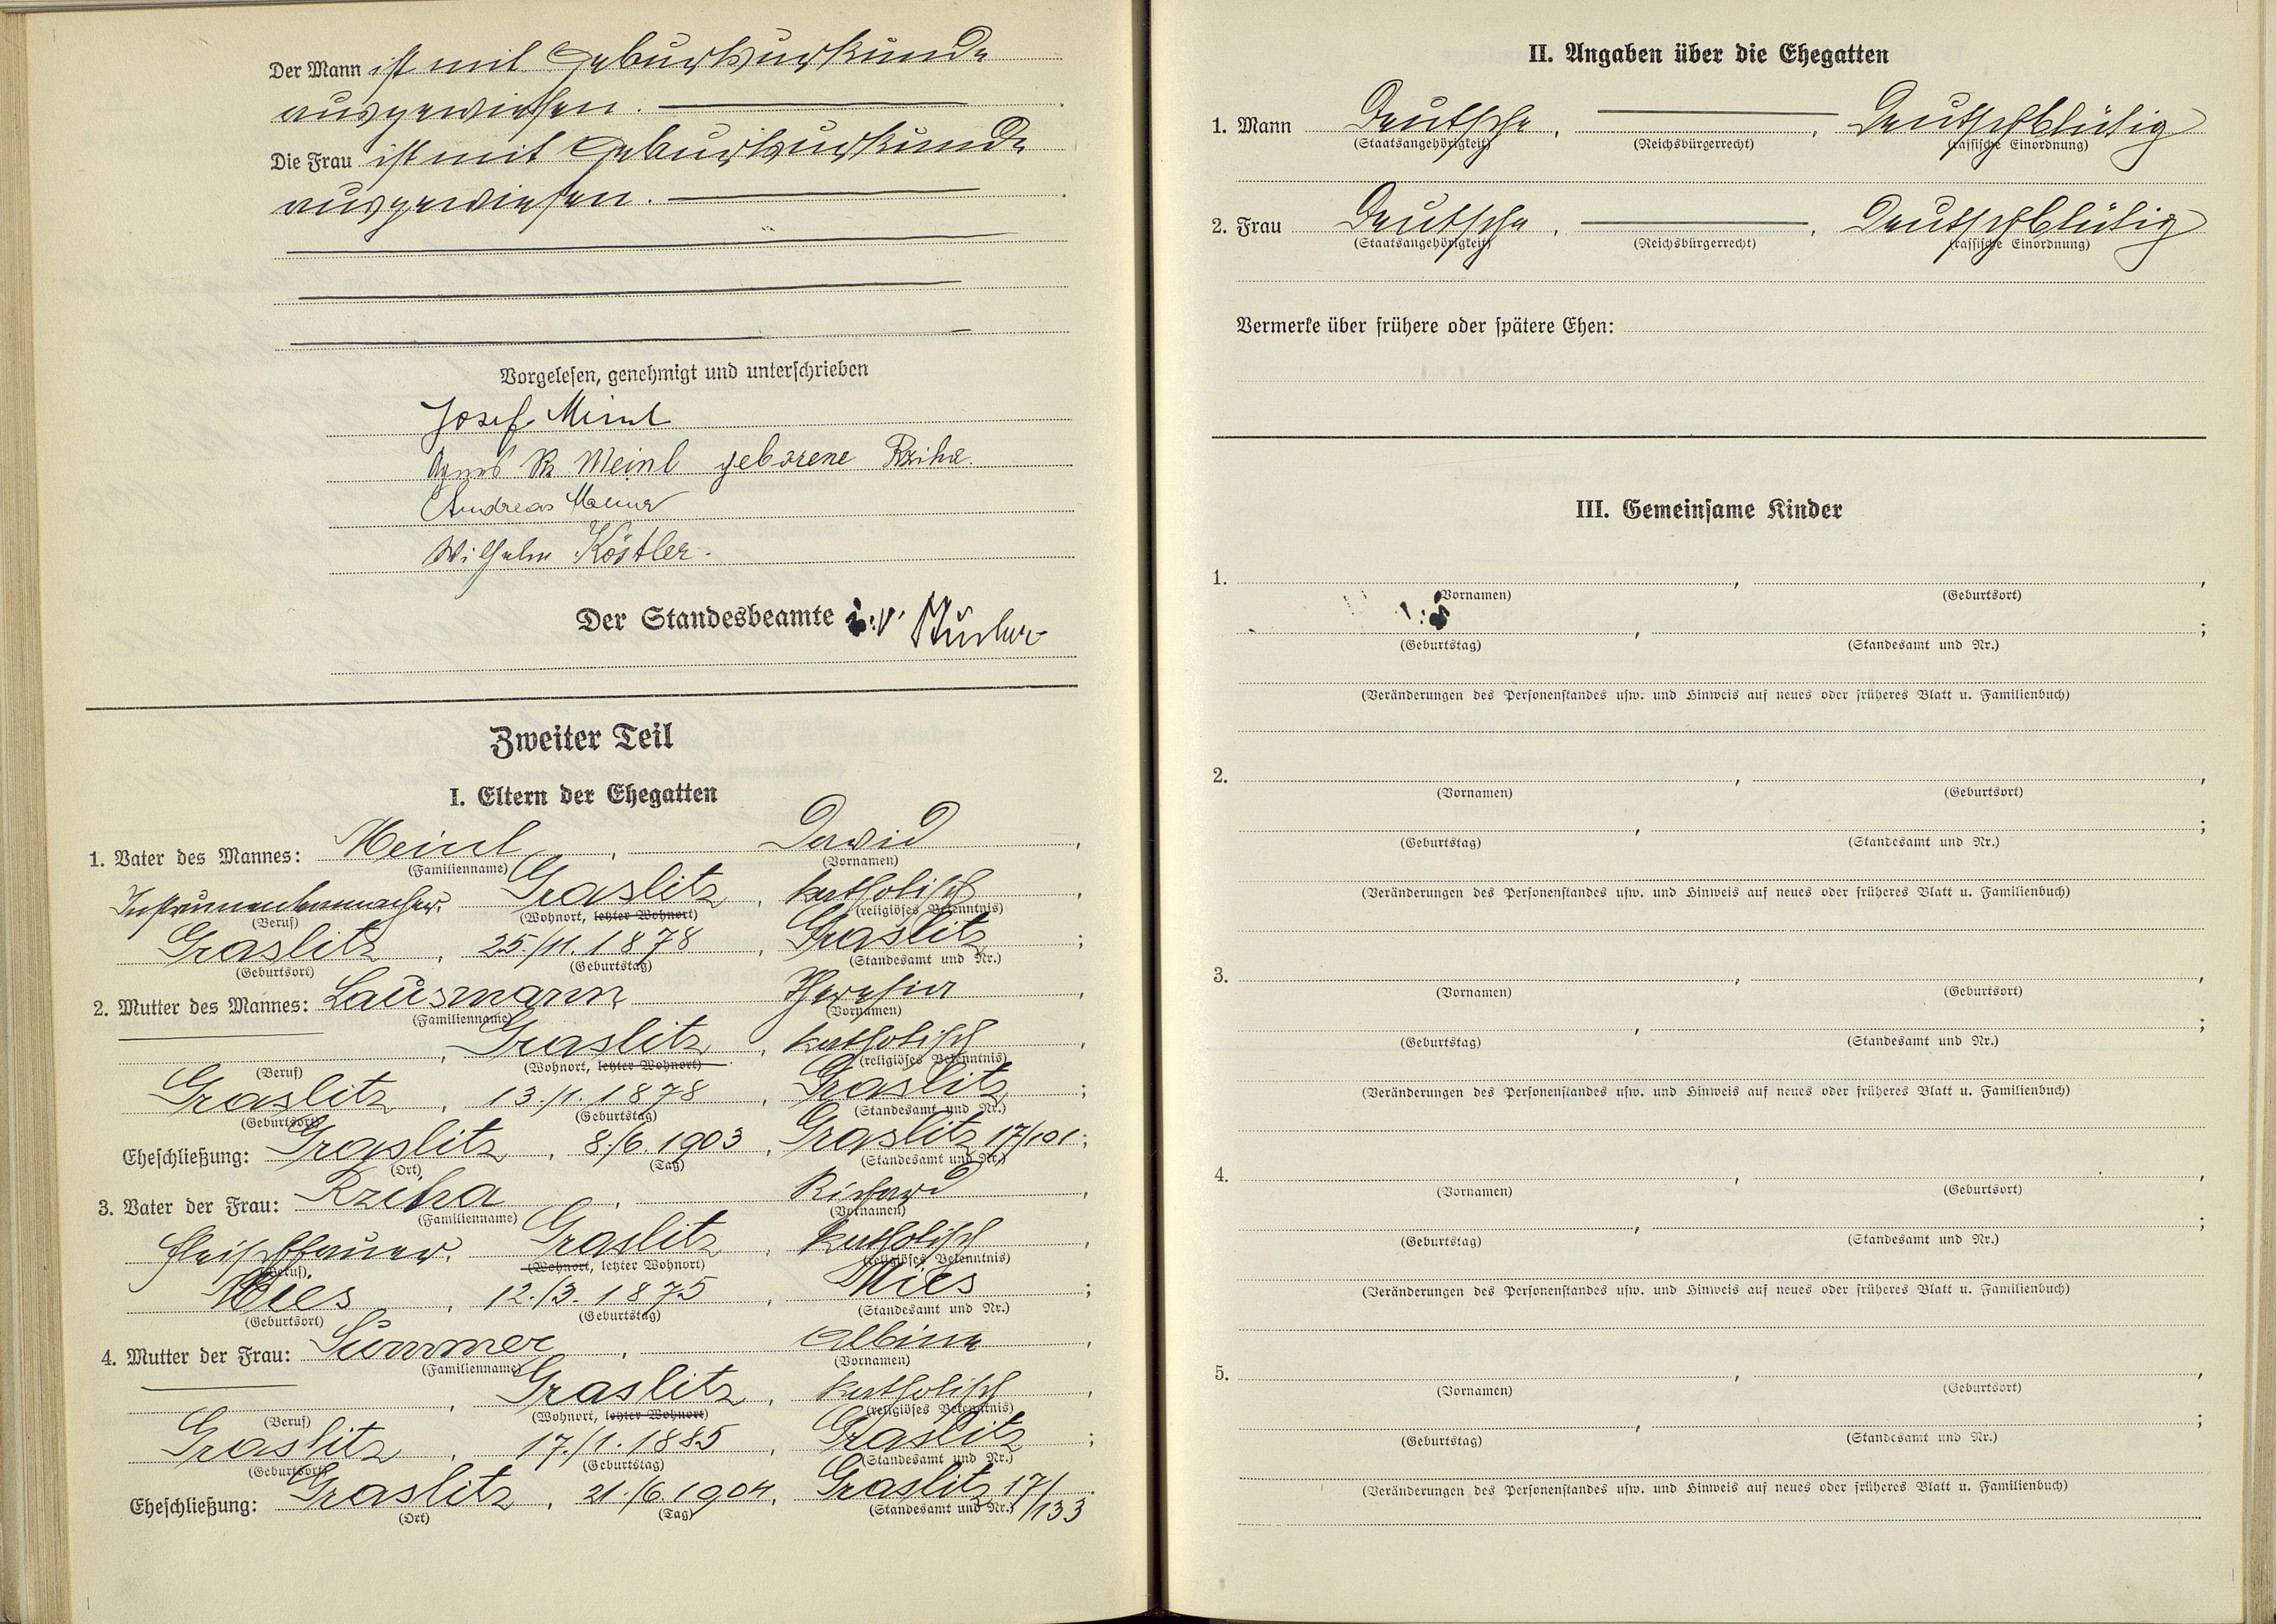 Der Mann ist mit Geburtsurkunde
ausgewiesen.
Die Frau ist mit Geburtsurkunde
ausgewiesen.
Vorgelesen, genehmigt und unterschrieben
Josef Meinl
Agnes Meinl geborene Rziha.
Andreas
Wilhelm Köstler.
Der Standesbeamte i.V.
Zweiter Teil
I. Eltern der Ehegatten
1. Vater des Mannes: Meinl, David,
(Familienname) (Vornamen)
Instrumentenmacher, Graslitz, katholisch,
(Beruf) (Wohnort, letzter Wohnort) (religiöses Bekenntnis)
Graslitz, 25./11.1878, Graslitz;
(Geburtsort) (Geburtstag) (Standesamt und Nr.)
2. Mutter des Mannes: Lausmann Theresia,
(Familienname) (Vornamen)
, Graslitz, katholisch,
(Beruf) (Wohnort, letzter Wohnort) (religiöses Bekenntnis)
Graslitz, 13./1.1878, Graslitz;
(Geburtsort) (Geburtstag) (Standesamt und Nr.)
Eheschließung: Graslitz, 8./6.1903, Graslitz 17/101;
(Ort) (Tag) (Standesamt und Nr.)
3. Vater der Frau: Rziha, Richard,
(Familienname) (Vornamen)
Fleischhauer, Graslitz, katholisch,
(Beruf) (Wohnort, letzter Wohnort) (religiöses Bekenntnis)
Mies, 12./3.1875, Mies;
(Geburtsort) (Geburtstag) (Standesamt und Nr.)
4. Mutter der Frau: Summer, Albina,
(Familienname) (Vornamen)
, Graslitz, katholisch,
(Beruf) (Wohnort, letzter Wohnort) (religiöses Bekenntnis)
Graslitz, 17./1.1885, Graslitz;
(Geburtsort) (Geburtstag) (Standesamt und Nr.)
Eheschließung: Graslitz, 21./6.1904, Graslitz 17/133
(Ort) (Tag) (Standesamt und Nr.)
II. Angaben über die Ehegatten
1. Mann Deutsche, , Deutschblütig
(Staatsangehörigkeit) (Reichsbürgerrecht) (rassische Einordnung)
2. Frau Deutsche, , Deutschblütig
(Staatsangehörigkeit) (Reichsbürgerrecht) (rassische Einordnung)
Vermerke über frühere oder spätere Ehen:
III. Gemeinsame Kinder
1. , ,
(Vornamen) (Geburtsort)
, ;
(Geburtstag) (Standesamt und Nr.)
(Veränderungen des Personenstandes usw. und Hinweis auf neues oder früheres Blatt u. Familienbuch)
2. , ,
(Vornamen) (Geburtsort)
, ;
(Geburtstag) (Standesamt und Nr.)
(Veränderungen des Personenstandes usw. und Hinweis auf neues oder früheres Blatt u. Familienbuch)
3. , ,
(Vornamen) (Geburtsort)
, ;
(Geburtstag) (Standesamt und Nr.)
(Veränderungen des Personenstandes usw. und Hinweis auf neues oder früheres Blatt u. Familienbuch)
4. , ,
(Vornamen) (Geburtsort)
, ;
(Geburtstag) (Standesamt und Nr.)
(Veränderungen des Personenstandes usw. und Hinweis auf neues oder früheres Blatt u. Familienbuch)
5. , ,
(Vornamen) (Geburtsort)
, ;
(Geburtstag) (Standesamt und Nr.)
(Veränderungen des Personenstandes usw. und Hinweis auf neues oder früheres Blatt u. Familienbuch)